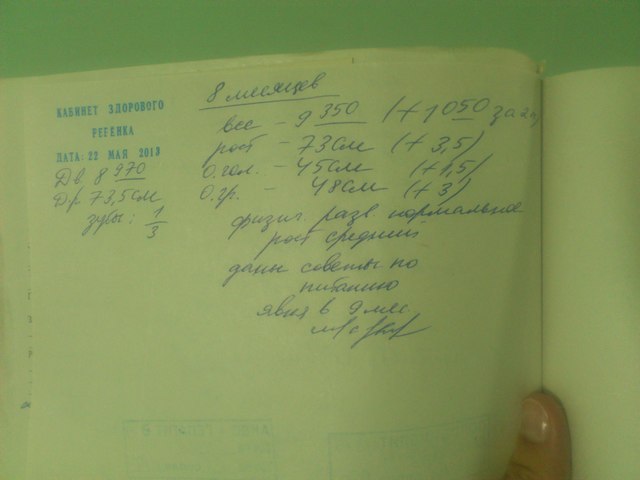 КАБИНЕТ ЗДОРОВОГО
РЕБЕНКА
ДАТА: 22 МАЯ 2013
Дв 8 970
Др. 73,5 см
зубы: 1/3
8 месяцев
вес - 9 350 (+1050 за 2
рост - 73 см (+3,5)
О.гол. - 45 см (+1,5)
О.гр. - 48 см (+3)
физич. разв нормальное
рост средний
даны советы по
питанию
явка в 9 мес
м/с